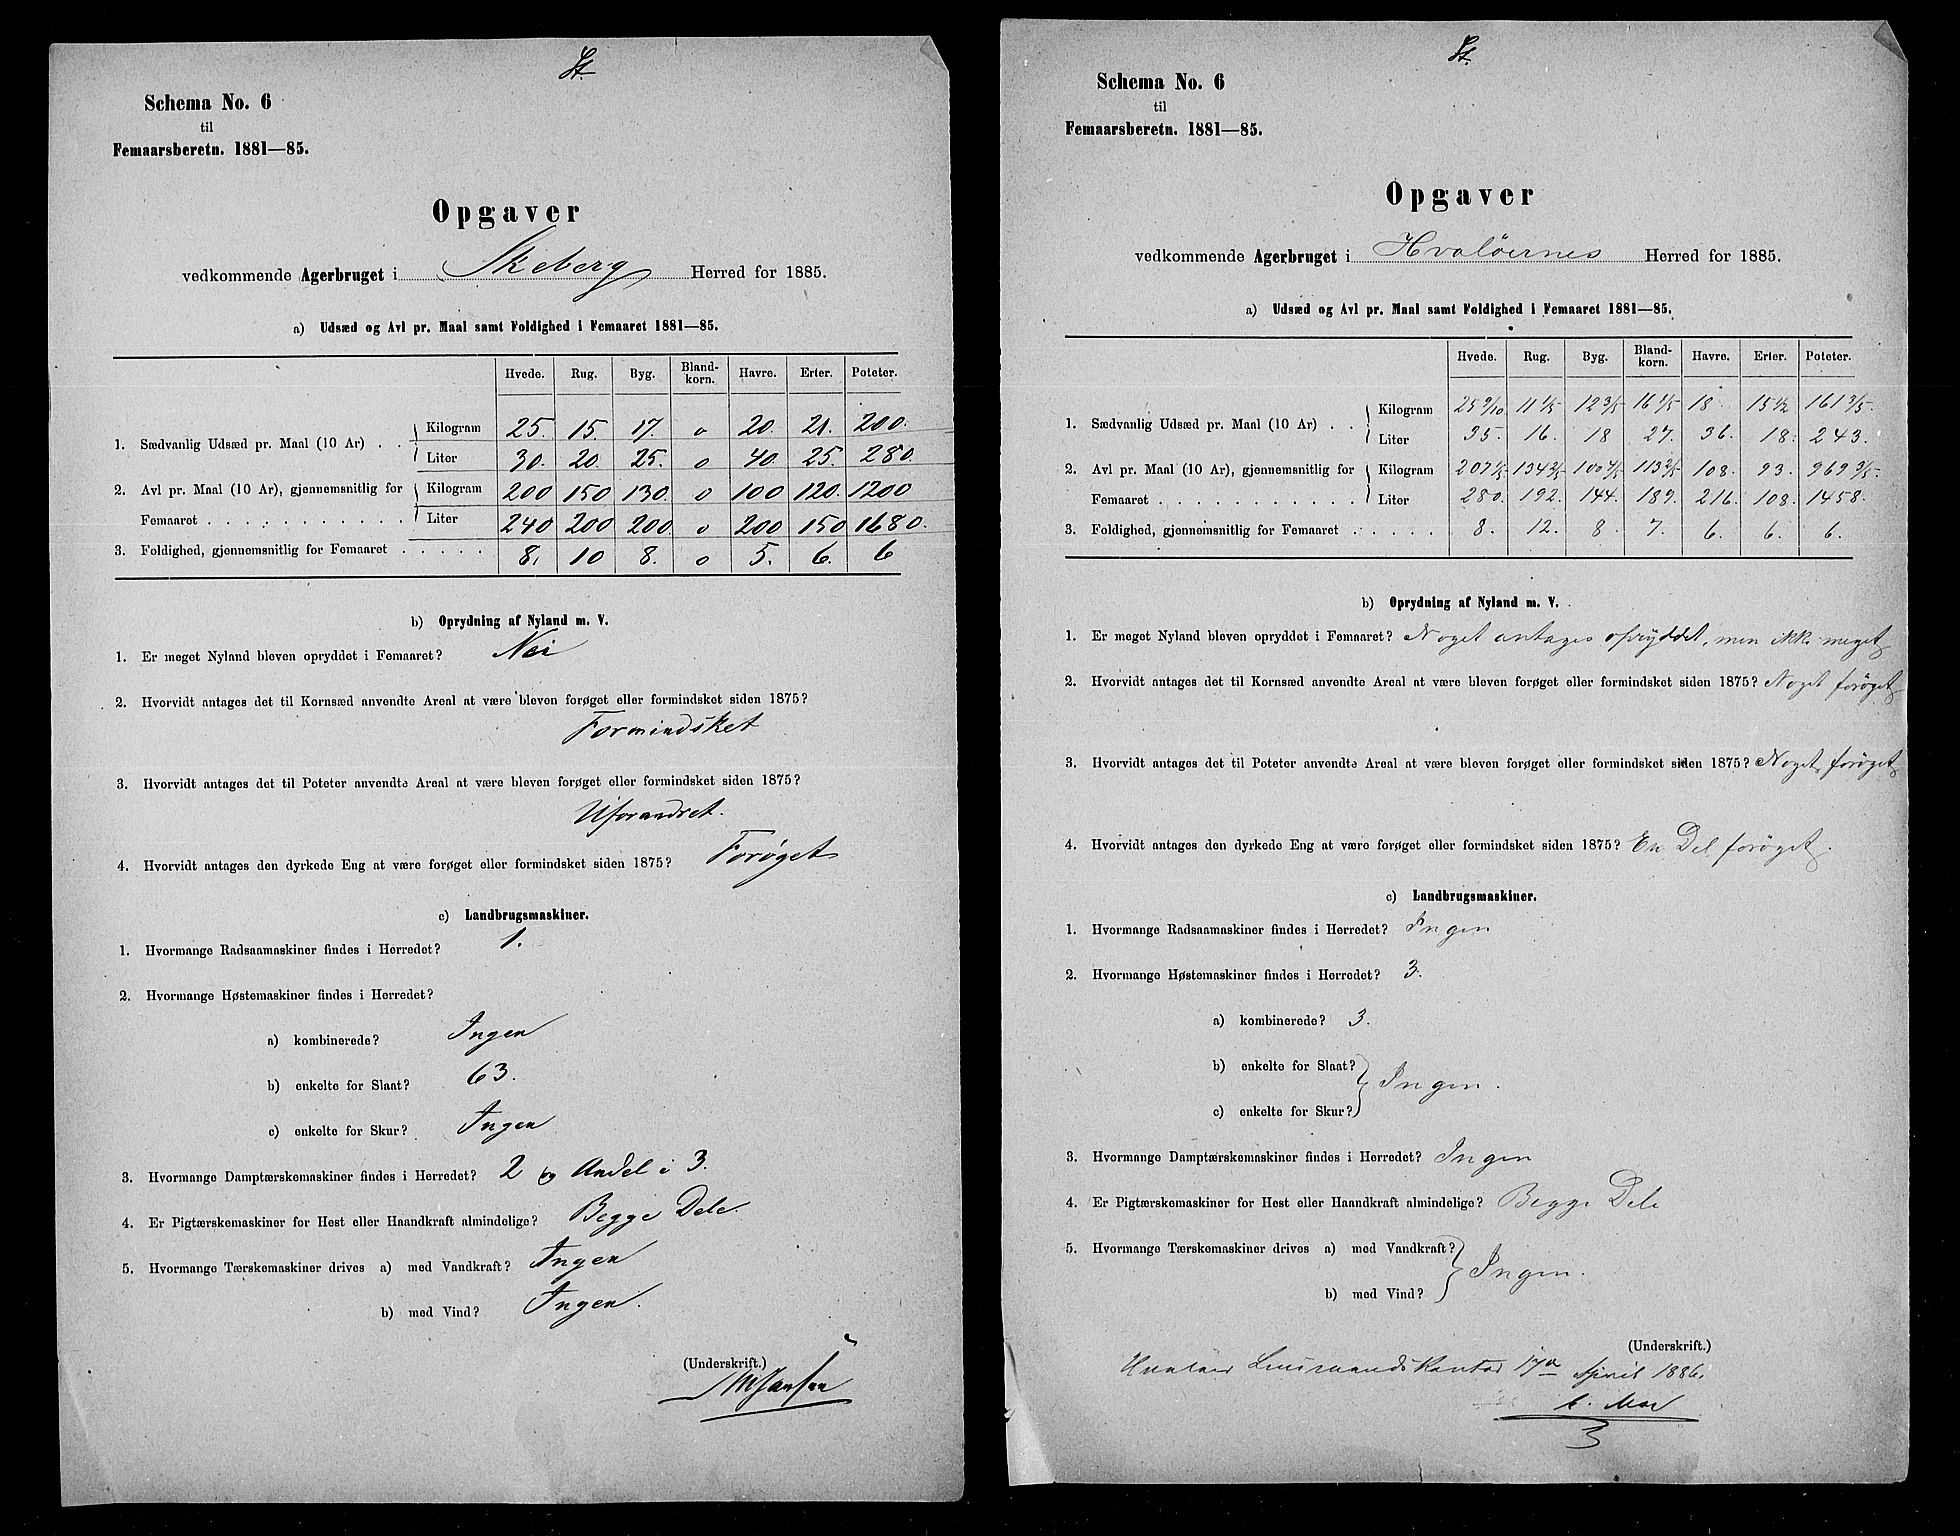 St.
Schema No. 6
til
Femaarsberetn. 1881—85.
Opgaver
vedkommende Agerbruget i Skeberg Herred for 1885.
a) Udsæd og Avl pr. Maal samt Foldighed i Femaaret 1881—85.
Hvede. Rug. Byg. Bland-korn. Havre. Erter. Poteter.
1. Sædvanlig Udsæd pr. Maal (10 Ar) . . Kilogram 25. 15. 17. o 20. 21. 200.
Liter 30. 20. 25. o 40. 25. 280.
2. Avl pr. Maal (10 Ar), gjennemsnitlig for Kilogram 200 150 130. o 100 120. 1200
Femaaret . . . . . . . . . . . Liter 240 200 200. o 200 150 1680.
3. Foldighed, gjennemsnitlig for Femaaret . . . . . 8. 10 8. o 5. 6. 6
b) Oprydning af Nyland m. V.
1. Er meget Nyland bleven opryddet i Femaaret? Nei
2. Hvorvidt antages det til Kornsæd anvendte Areal at være bleven forøget eller formindsket siden 1875?
Formindsket
3. Hvorvidt antages det til Poteter anvendte Areal at være bleven forøget eller formindsket siden 1875?
Uforandret.
4. Hvorvidt antages den dyrkede Eng at være forøget eller formindsket siden 1875? Forøget
c) Landbrugsmaskiner.
1. Hvormange Radsaamaskiner findes i Herredet? 1.
2. Hvormange Høstemaskiner findes i Herredet?
a) kombinerede? Ingen
b) enkelte for Slaat? 63.
c) enkelte for Skur? Ingen
3. Hvormange Damptærskemaskiner findes i Herredet? 2 og Andel i 3.
4. Er Pigtærskemaskiner for Hest eller Haandkraft almindelige? Begge Dele.
5. Hvormange Tærskemaskiner drives a) med Vandkraft? Ingen
b) med Vind? Ingen.
(Underskrift.)
St.
Schema No. 6
til
Femaarsberetn. 1881—85.
Opgaver
vedkommende Agerbruget i Hvaløernes Herred for 1885.
a) Udsæd og Avl pr. Maal samt Foldighed i Femaaret 1881—85.
Hvede. Rug. Byg. Bland-korn. Havre. Erter. Poteter.
1. Sædvanlig Udsæd pr. Maal (10 Ar) . . Kilogram 25 9/10 11 1/5 12 3/5 16 1/5 18 15 1/2 161 3/5.
Liter 35. 16. 18 27. 36. 18. 243.
2. Avl pr. Maal (10 Ar), gjennemsnitlig for Kilogram 207 1/5 134 2/5 100 4/5 113 2/5 108. 93. 969 3/5.
Femaaret . . . . . . . . . . . Liter 280. 192. 144. 189. 216. 108. 1458.
3. Foldighed, gjennemsnitlig for Femaaret . . . . . 8. 12. 8 7. 6. 6. 6.
b) Oprydning af Nyland m. V.
1. Er meget Nyland bleven opryddet i Femaaret? Noget antages opryddet, men ikke meget
2. Hvorvidt antages det til Kornsæd anvendte Areal at være bleven forøget eller formindsket siden 1875? Noget forøget
3. Hvorvidt antages det til Poteter anvendte Areal at være bleven forøget eller formindsket siden 1875? Noget forøget
4. Hvorvidt antages den dyrkede Eng at være forøget eller formindsket siden 1875? En Del forøget.
c) Landbrugsmaskiner.
1. Hvormange Radsaamaskiner findes i Herredet? Ingen
2. Hvormange Høstemaskiner findes i Herredet? 3.
a) kombinerede? 3.
b) enkelte for Slaat? Ingen.
c) enkelte for Skur?
3. Hvormange Damptærskemaskiner findes i Herredet? Ingen
4. Er Pigtærskemaskiner for Hest eller Haandkraft almindelige? Begge Dele
5. Hvormange Tærskemaskiner drives a) med Vandkraft? Ingen.
b) med Vind?
(Underskrift.)
Hvaløer Lensmandskontor 17de April 1886.